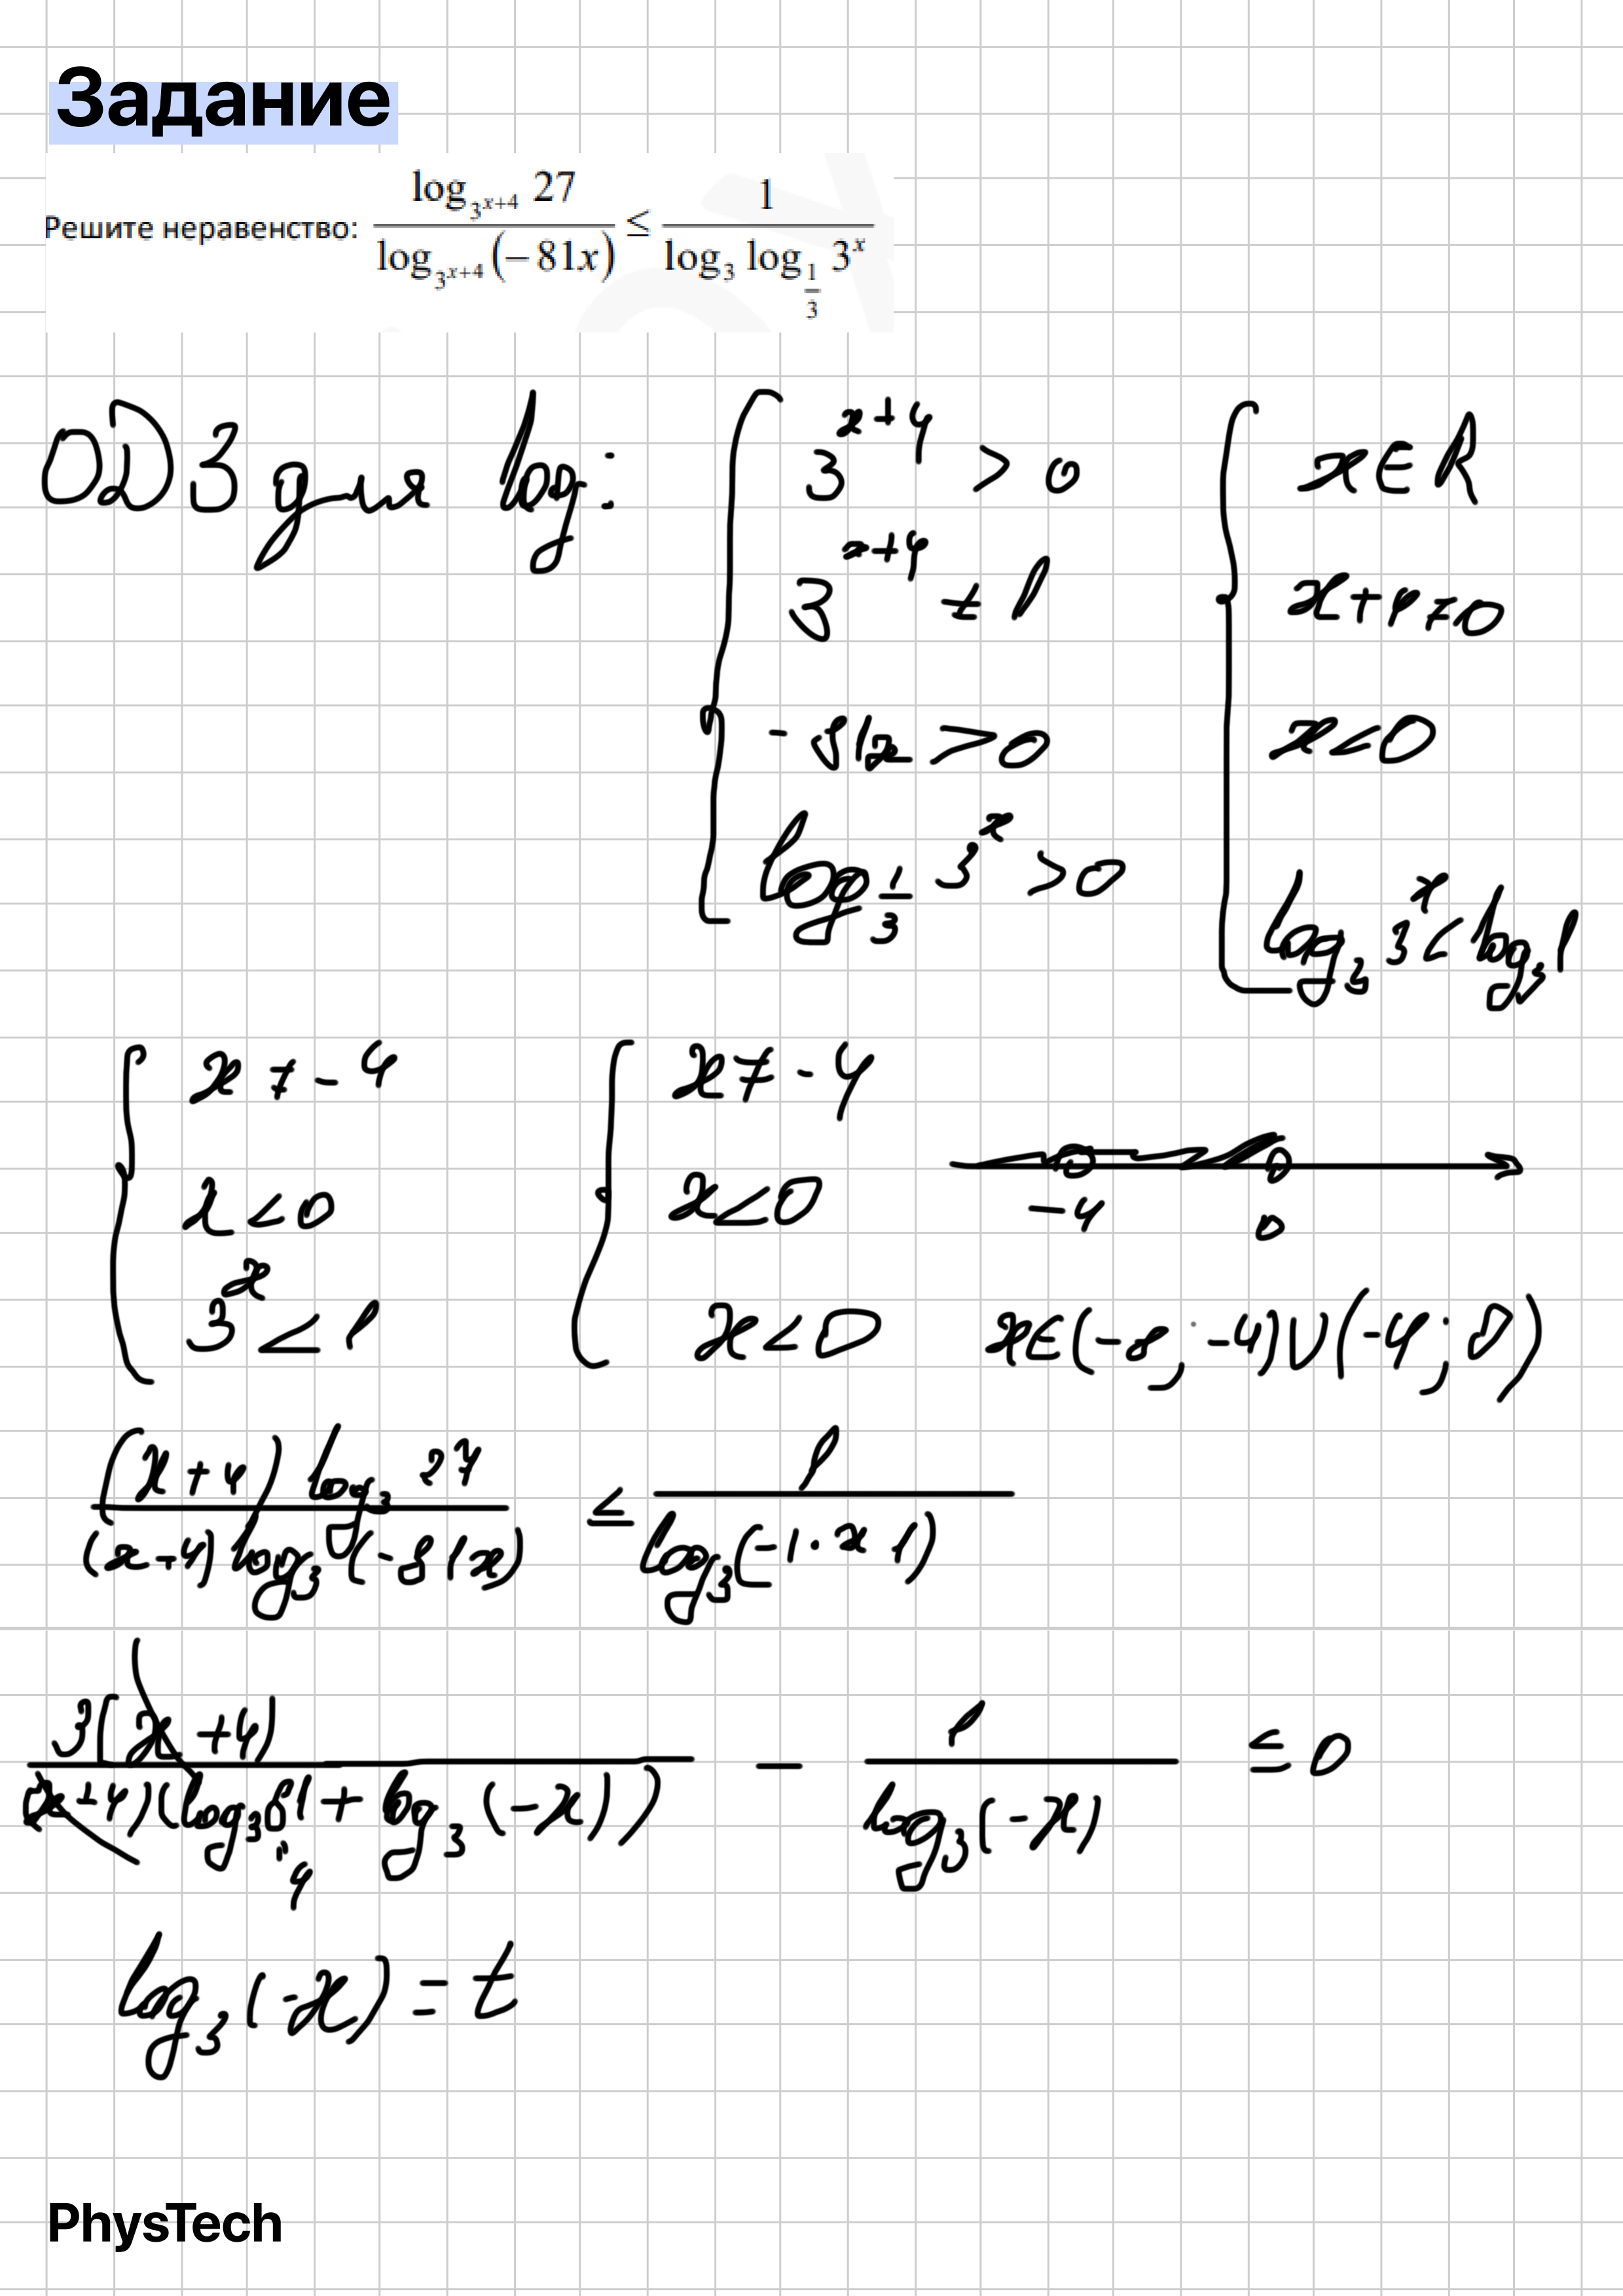 Задание
Решите неравенство: log_{3^{x+4}} 27 / log_{3^{x+4}} (−81x) ≤ 1 / log_3 log_{1/3} 3^x
ОДЗ для log: { 3^{x+4} > 0 { x ∈ R
3^{x+4} ≠ 1 x+4 ≠ 0
-81x > 0 x < 0
log_{1/3} 3^x > 0 log_3 3^x < log_3 1
{ x ≠ -4 { x ≠ -4
x < 0 x < 0 -4 0
3^x < 1 x < 0 x ∈ (-∞; -4) ∪ (-4; 0)
(x+4) log_3 27 / (x+4) log_3 (-81x) ≤ 1 / log_3 (-1·x·1)
3(x+4) / (x+4)(log_3 81 + log_3 (-x)) - 1 / log_3 (-x) ≤ 0
4
log_3 (-x) = t
PhysTech